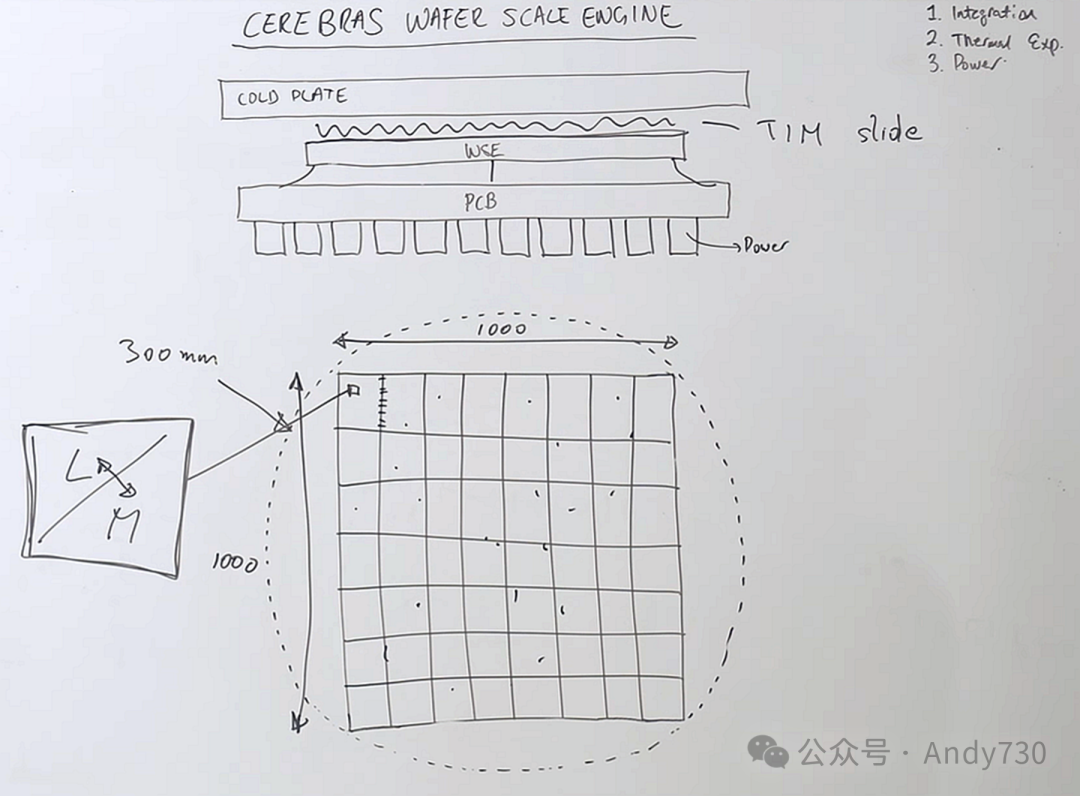 CEREBRAS WAFER SCALE ENGINE
1. Integration
2. Thermal Exp.
3. Power
COLD PLATE
TIM slide
WSE
PCB
Power
1000
300mm
L
M
1000
公众号 · Andy730